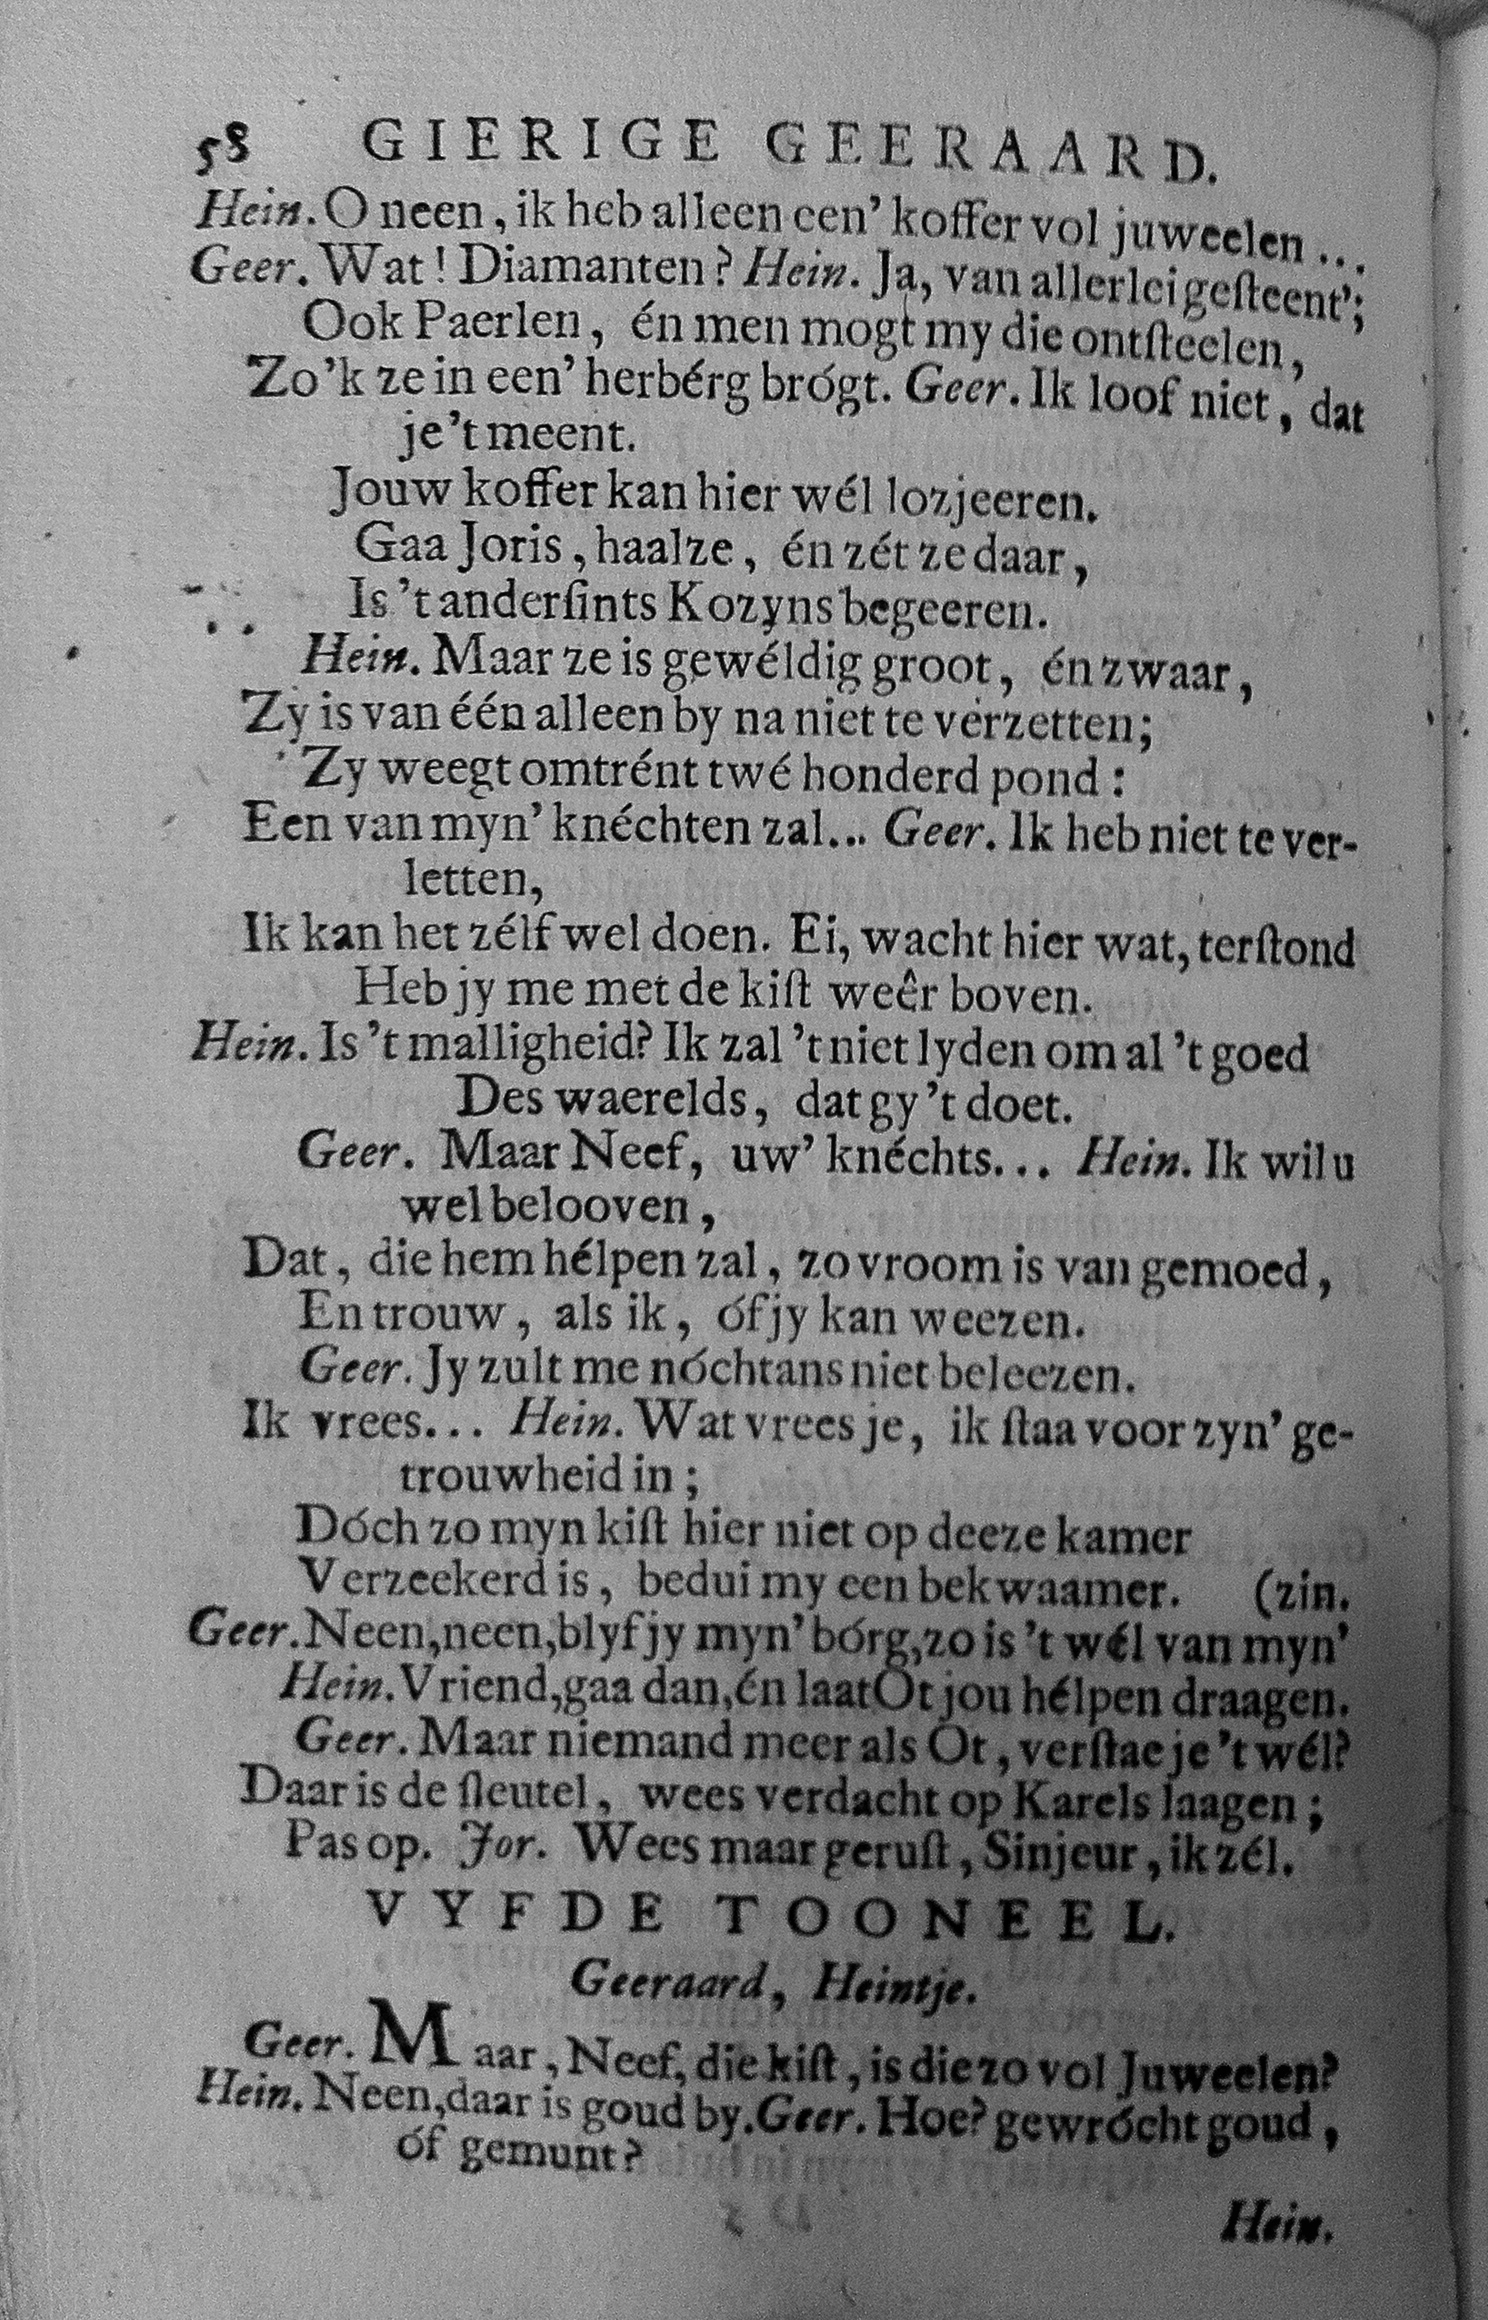 58 GIERIGE GEERAARD.
Hein. O neen, ik heb alleen een' koffer vol juweelen ...
Geer. Wat! Diamanten? Hein. Ja, van allerlei geſteent';
Ook Paerlen, én men mogt my die ontſteelen,
Zo'k ze in een' herbérg brógt. Geer. Ik loof niet, dat
je't meent.
Jouw koffer kan hier wél lozjeeren.
Gaa Joris, haalze, én zét ze daar,
Is 't anderſints Kozyns begeeren.
Hein. Maar ze is gewéldig groot, én zwaar,
Zy is van één alleen by na niet te verzetten;
Zy weegt omtrént twé honderd pond:
Een van myn' knéchten zal... Geer. Ik heb niet te ver-
letten,
Ik kan het zélf wel doen. Ei, wacht hier wat, terſtond
Heb jy me met de kiſt weêr boven.
Hein. Is 't malligheid? Ik zal 't niet lyden om al 't goed
Des waerelds, dat gy 't doet.
Geer. Maar Neef, uw' knéchts... Hein. Ik wil u
wel belooven,
Dat, die hem hélpen zal, zo vroom is van gemoed,
En trouw, als ik, óf jy kan weezen.
Geer. Jy zult me nóchtans niet beleezen.
Ik vrees... Hein. Wat vrees je, ik ſtaa voor zyn' ge-
trouwheid in;
Dóch zo myn kiſt hier niet op deeze kamer
Verzeekerd is, bedui my een bekwaamer. (zin.
Geer. Neen, neen, blyf jy myn' bórg, zo is 't wél van myn'
Hein. Vriend, gaa dan, én laat Ot jou hélpen draagen.
Geer. Maar niemand meer als Ot, verſtae je 't wél?
Daar is de ſleutel, wees verdacht op Karels laagen;
Pas op. Jor. Wees maar geruſt, Sinjeur, ik zél.
VYFDE TOONEEL.
Geeraard, Heintje.
Geer. Maar, Neef, die kiſt, is die zo vol Juweelen?
Hein. Neen, daar is goud by. Geer. Hoe? gewrócht goud,
óf gemunt?
Hein.